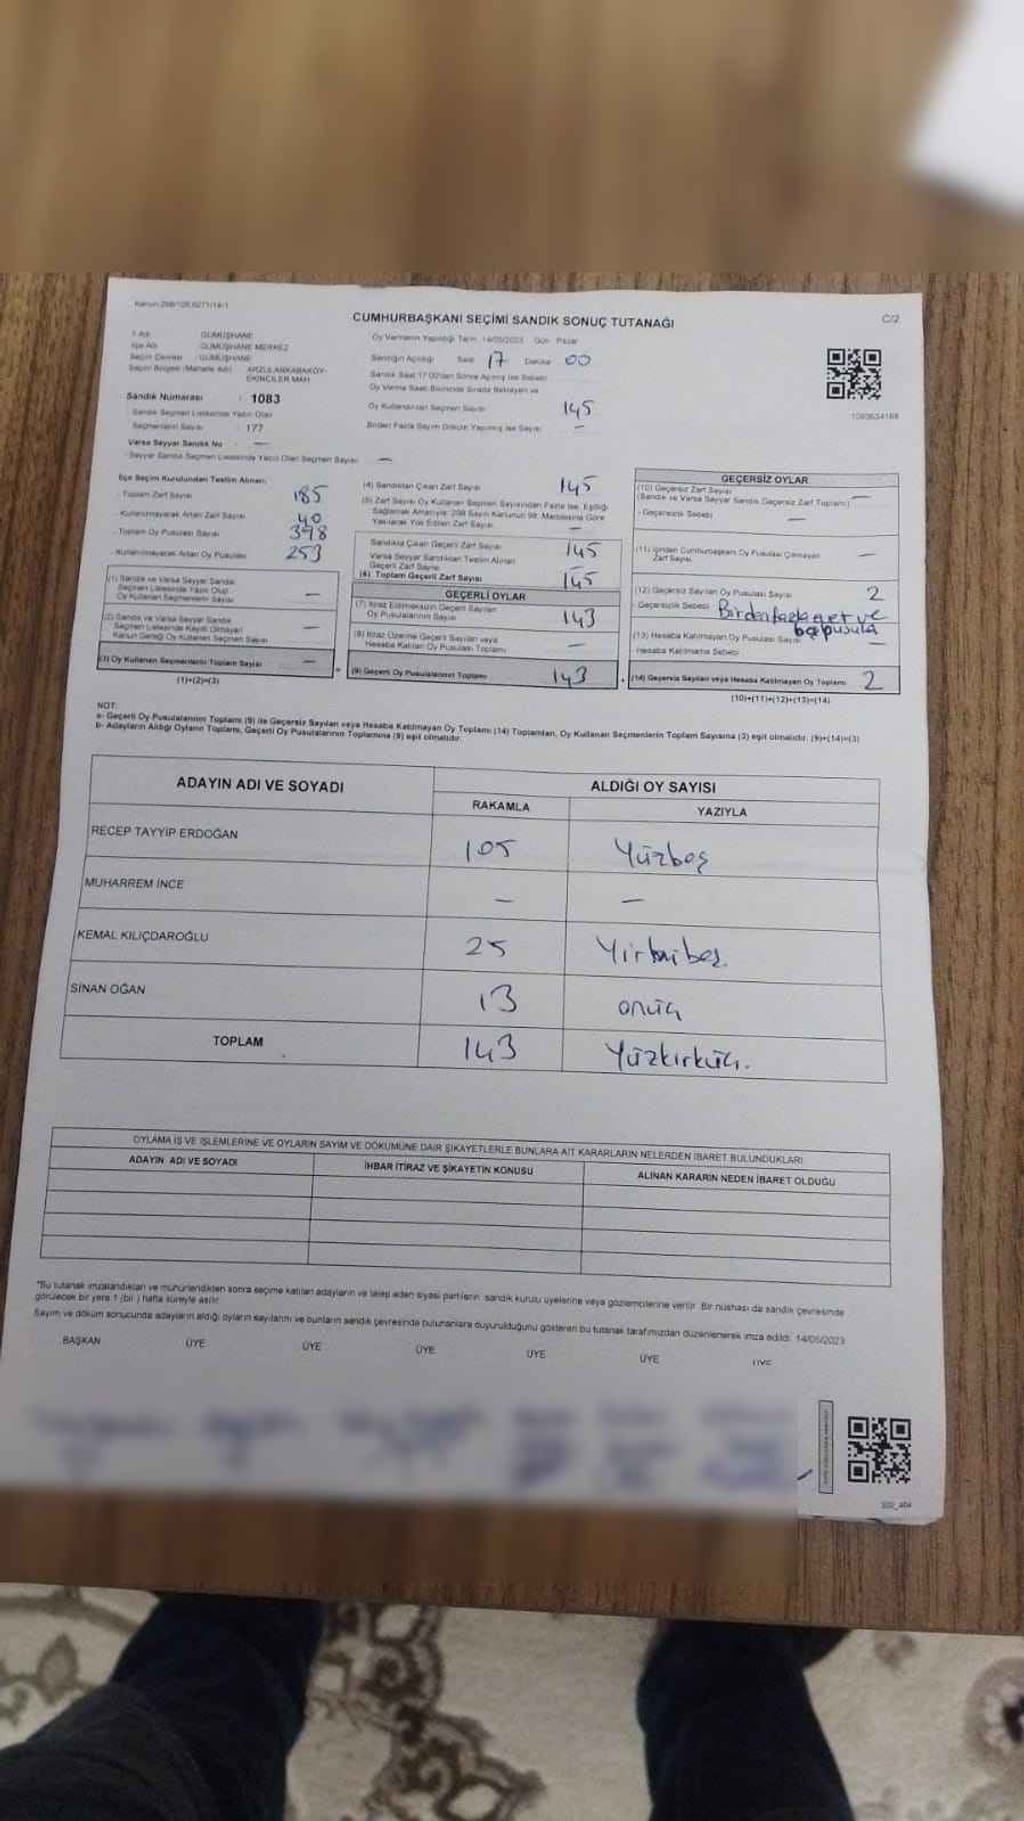 Kanun:298/105,6271/14/1
CUMHURBAŞKANI SEÇİMİ SANDIK SONUÇ TUTANAĞI
C/2
İl Adı : GÜMÜŞHANE
İlçe Adı : GÜMÜŞHANE MERKEZ
Seçim Çevresi : GÜMÜŞHANE
Seçim Bölgesi (Mahalle Adı) : ARZULARKABAKÖY-
EKİNCİLER MAH
Sandık Numarası : 1083
Sandık Seçmen Listesinde Yazılı Olan
Seçmenlerin Sayısı : 177
Varsa Seyyar Sandık No —
Seyyar Sandık Seçmen Listesinde Yazılı Olan Seçmen Sayısı —
Oy Vermenin Yapıldığı Tarih: 14/05/2023 Gün: Pazar
Sandığın Açıldığı Saat 17 Dakika 00
Sandık Saat 17:00'dan Sonra Açılmış İse Sebebi
Oy Verme Saati Bitiminde Sırada Bekleyen ve
Oy Kullandırılan Seçmen Sayısı 145
Birden Fazla Sayım Döküm Yapılmış İse Sayısı —
İlçe Seçim Kurulundan Teslim Alınan:
- Toplam Zarf Sayısı 185
- Kullanılmayarak Artan Zarf Sayısı 40
- Toplam Oy Pusulası Sayısı 398
- Kullanılmayarak Artan Oy Pusulası 253
(1) Sandık ve Varsa Seyyar Sandık
Seçmen Listesinde Yazılı Olup
Oy Kullanan Seçmenlerin Sayısı —
(2) Sandık ve Varsa Seyyar Sandık
Seçmen Listesinde Kayıtlı Olmayan
Kanun Gereği Oy Kullanan Seçmen Sayısı —
(3) Oy Kullanan Seçmenlerin Toplam Sayısı —
(1)+(2)=(3)
(4) Sandıktan Çıkan Zarf Sayısı 145
(5) Zarf Sayısı Oy Kullanan Seçmen Sayısından Fazla İse, Eşitliği
Sağlamak Amacıyla; 298 Sayılı Kanunun 98. Maddesine Göre
Yakılarak Yok Edilen Zarf Sayısı —
Sandıkta Çıkan Geçerli Zarf Sayısı 145
Varsa Seyyar Sandıktan Teslim Alınan
Geçerli Zarf Sayısı
(6) Toplam Geçerli Zarf Sayısı 145
GEÇERLİ OYLAR
(7) İtiraz Edilmeksizin Geçerli Sayılan
Oy Pusulalarının Sayısı 143
(8) İtiraz Üzerine Geçerli Sayılan veya
Hesaba Katılan Oy Pusulası Toplamı —
(9) Geçerli Oy Pusulalarının Toplamı 143
GEÇERSİZ OYLAR
(10) Geçersiz Zarf Sayısı
(Sandık ve Varsa Seyyar Sandık Geçersiz Zarf Toplamı) —
- Geçersizlik Sebebi —
(11) İçinden Cumhurbaşkanı Oy Pusulası Çıkmayan
Zarf Sayısı —
(12) Geçersiz Sayılan Oy Pusulası Sayısı 2
- Geçersizlik Sebebi Birden fazla evet ve
boş pusula
(13) Hesaba Katılmayan Oy Pusulası Sayısı —
Hesaba Katılmama Sebebi
(14) Geçersiz Sayılan veya Hesaba Katılmayan Oy Toplamı 2
(10)+(11)+(12)+(13)=(14)
NOT:
a- Geçerli Oy Pusulalarının Toplamı (9) ile Geçersiz Sayılan veya Hesaba Katılmayan Oy Toplamı (14) Toplamları, Oy Kullanan Seçmenlerin Toplam Sayısına (3) eşit olmalıdır. (9)+(14)=(3)
b- Adayların Aldığı Oyların Toplamı, Geçerli Oy Pusulalarının Toplamına (9) eşit olmalıdır.
ADAYIN ADI VE SOYADI
ALDIĞI OY SAYISI
RAKAMLA YAZIYLA
RECEP TAYYİP ERDOĞAN 105 Yüzbeş
MUHARREM İNCE — —
KEMAL KILIÇDAROĞLU 25 Yirmibeş.
SİNAN OĞAN 13 onüç
TOPLAM 143 Yüzkırküç.
OYLAMA İŞ VE İŞLEMLERİNE VE OYLARIN SAYIM VE DÖKÜMÜNE DAİR ŞİKAYETLERLE BUNLARA AİT KARARLARIN NELERDEN İBARET BULUNDUKLARI
ADAYIN ADI VE SOYADI İHBAR İTİRAZ VE ŞİKAYETİN KONUSU ALINAN KARARIN NEDEN İBARET OLDUĞU
*Bu tutanak imzalandıktan ve mühürlendikten sonra seçime katılan adayların ve talep eden siyasi partilerin, sandık kurulu üyelerine veya gözlemcilerine verilir. Bir nüshası da sandık çevresinde
görülecek bir yere 1 (bir ) hafta süreyle asılır.
Sayım ve döküm sonucunda adayların aldığı oyların sayılarını ve bunların sandık çevresinde bulunanlara duyurulduğunu gösteren bu tutanak tarafımızdan düzenlenerek imza edildi. 14/05/2023
BAŞKAN ÜYE ÜYE ÜYE ÜYE ÜYE ÜYE